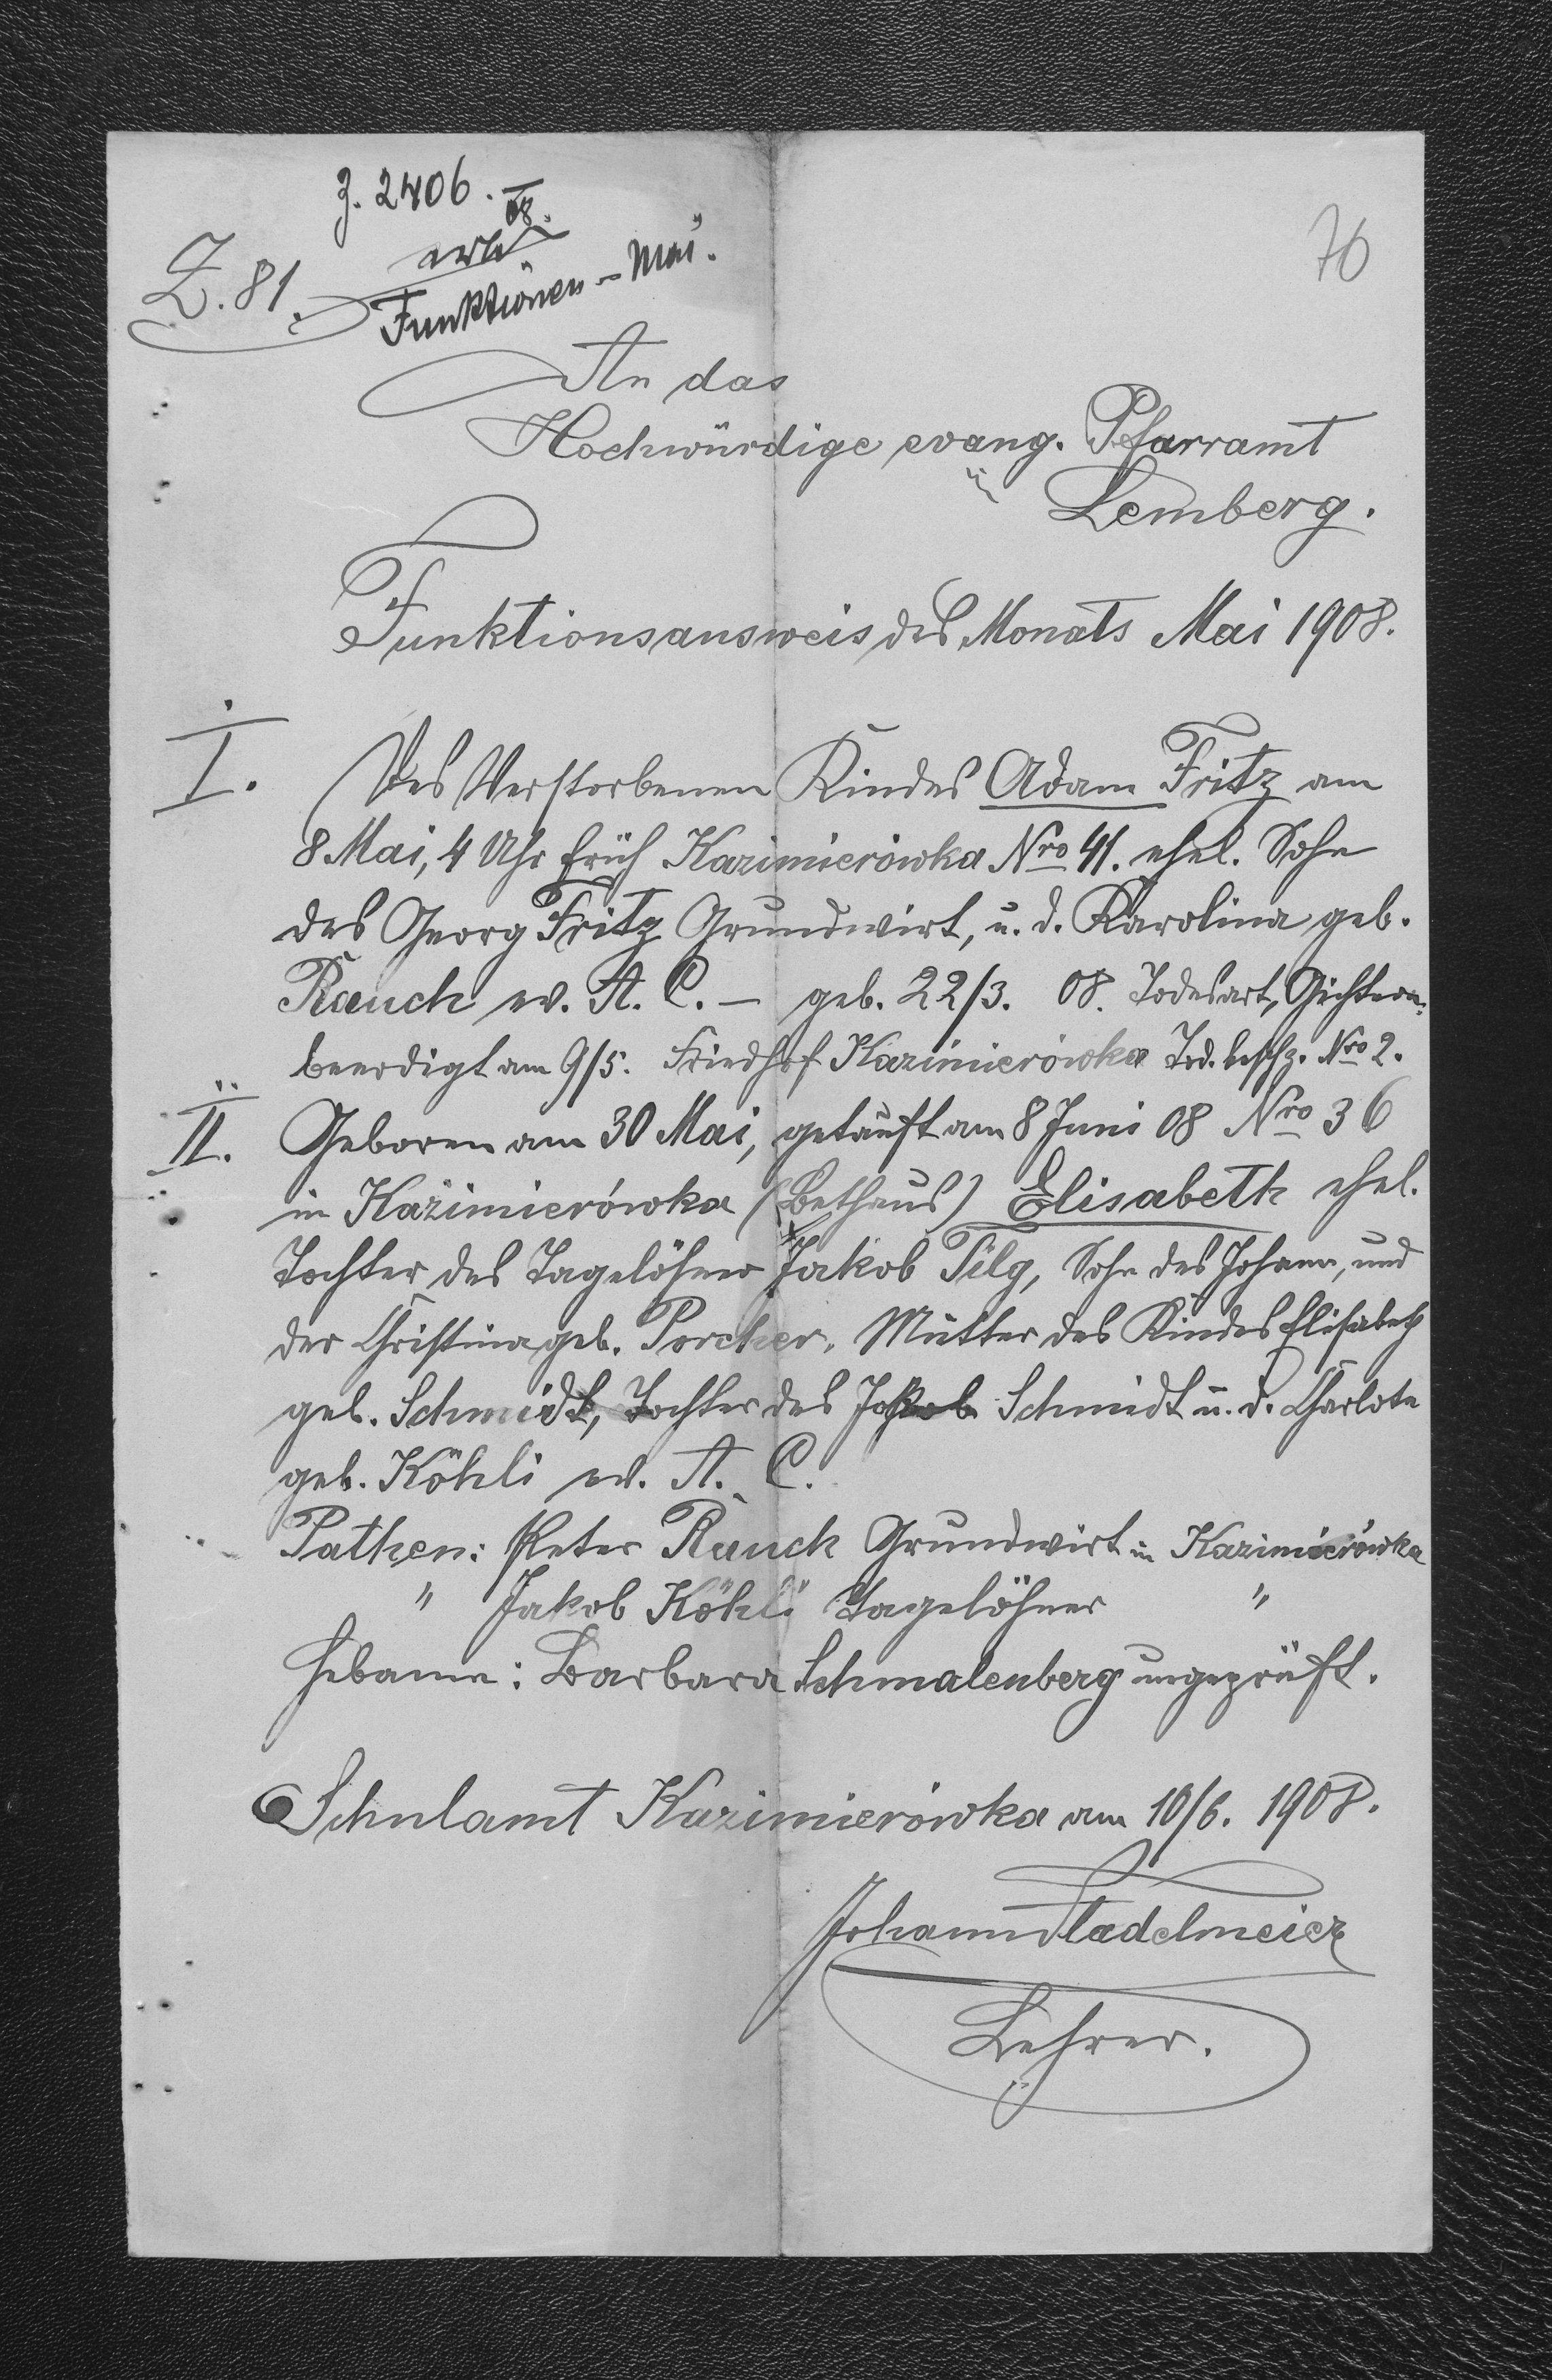 Z. 2406.
08.
erl.
Funktionen - Mai.
Z. 81.
76
An das
Hochwürdige evang. Pfarramt
in Lemberg.
Funktionsausweis des Monats Mai 1908.
I. Des Verstorbenen Kindes Adam Fritz am
8 Mai, 4 Uhr früh Kazimierówka Nro 41. ehel. Sohn
des Georg Fritz Grundwirt, u. d. Karolina geb.
Rauch ev. A. C. — geb. 22/3. 08. Todesart, Gichtern
beerdigt am 9/5. Friedhof Kazimierówka Tod. beschz. Nro 2.
II. Geboren am 30 Mai, getauft am 8 Juni 08 Nro 36
in Kazimierówka (Bethaus) Elisabeth ehel.
Tochter des Tagelöhner Jakob Filg, Sohn des Johann, und
der Christina geb. Porcher. Mutter des Kindes Elisabeth
geb. Schmidt, Tochter des Jakob Schmidt u. d. Charlote
geb. Köhli ev. A. C.
Pathen: Peter Rauch Grundwirt in Kazimierówka
" Jakob Köhli Tagelöhner "
Hebamme: Barbara Schmalenberg ungeprüft.
Schulamt Kazimierówka am 10/6. 1908.
Johann Stadelmeier
Lehrer.